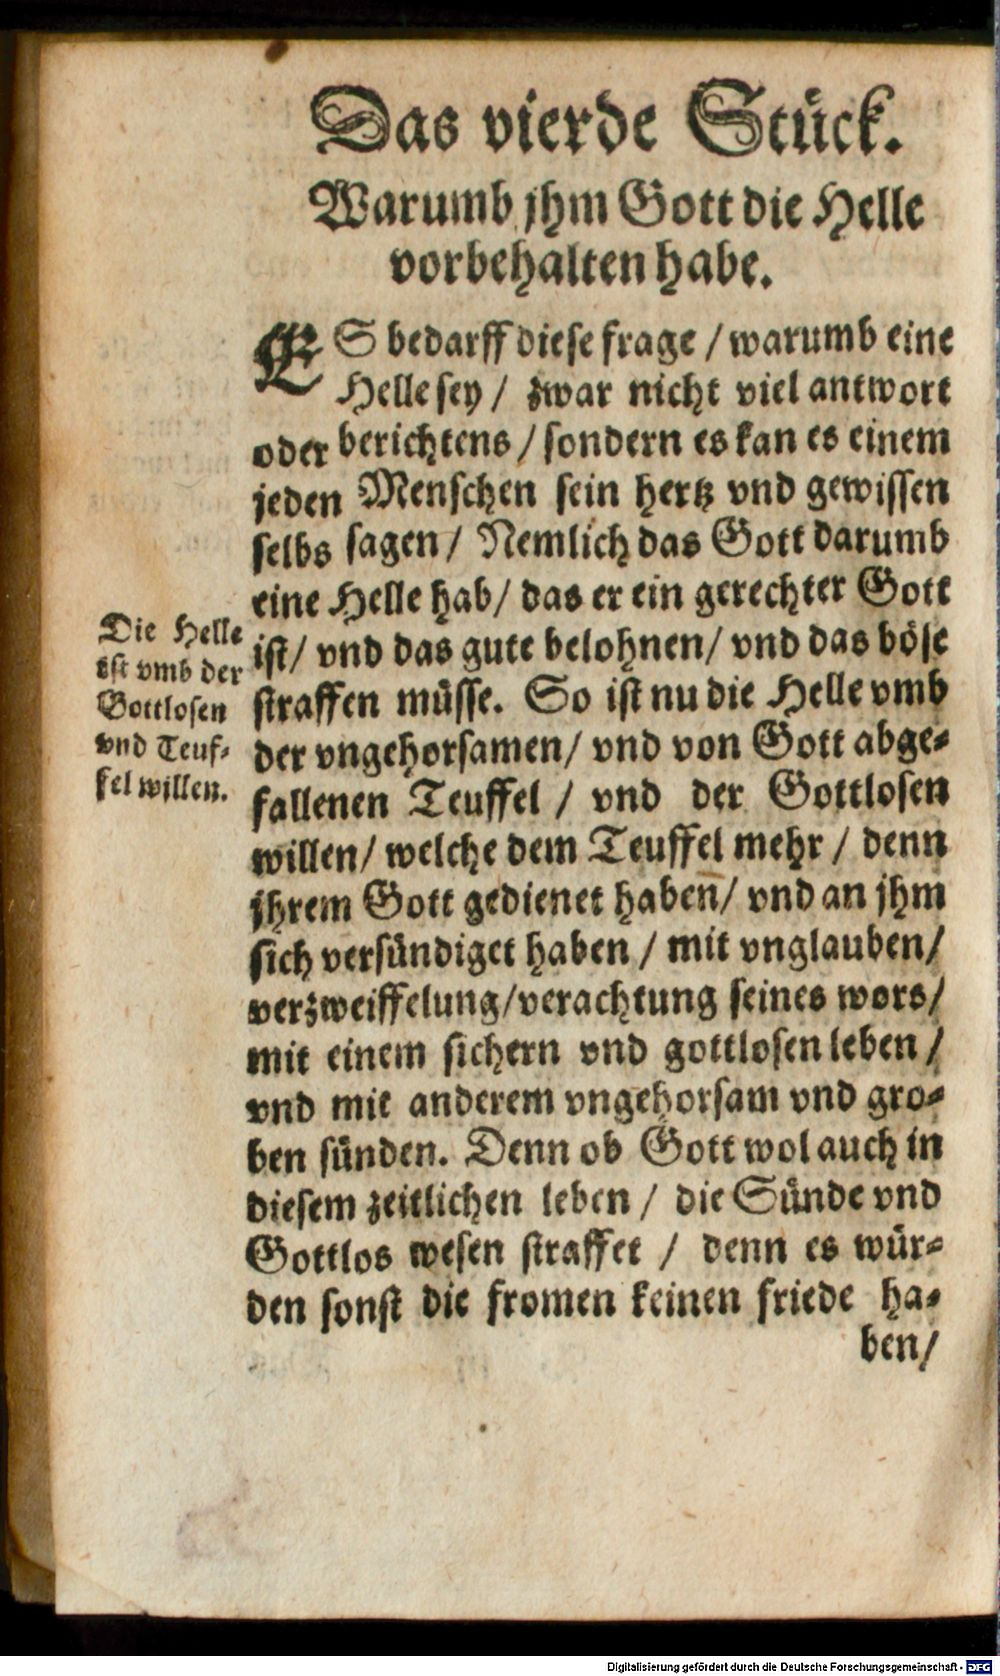 Das vierde Stück.
Warumb jhm Gott die Helle
vorbehalten habe.
ES bedarff diese frage / warumb eine
Helle sey / zwar nicht viel antwort
oder berichtens / sondern es kan es einem
jeden Menschen sein hertz vnd gewissen
selbs sagen / Nemlich das Gott darumb
eine Helle hab / das er ein gerechter Gott
ist / vnd das gute belohnen / vnd das böse
straffen müsse. So ist nu die Helle vmb
der vngehorsamen / vnd von Gott abge-
fallenen Teuffel / vnd der Gottlosen
willen / welche dem Teuffel mehr / denn
jhrem Gott gedienet haben / vnd an jhm
sich versündiget haben / mit vnglauben /
verzweiffelung / verachtung seines wors /
mit einem sichern vnd gottlosen leben /
vnd mit anderem vngehorsam vnd gro-
ben sünden. Denn ob Gott wol auch in
diesem zeitlichen leben / die Sünde vnd
Gottlos wesen straffet / denn es wür-
den sonst die fromen keinen friede ha-
ben /
Die Helle
ist vmb der
Gottlosen
vnd Teuf-
fel willen.
Digitalisierung gefördert durch die Deutsche Forschungsgemeinschaft - DFG